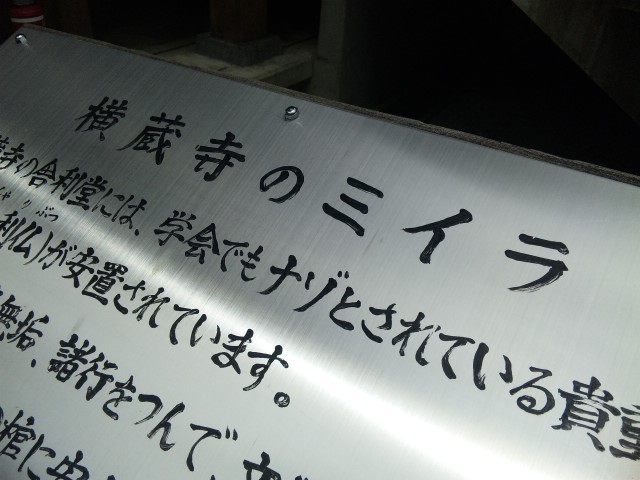 横蔵寺のミイラ
寺の舎利堂には、学会でもナゾとされている貴重
りぶつ
利仏)が安置されています。
無垢、諸行をつんで、
棺に安